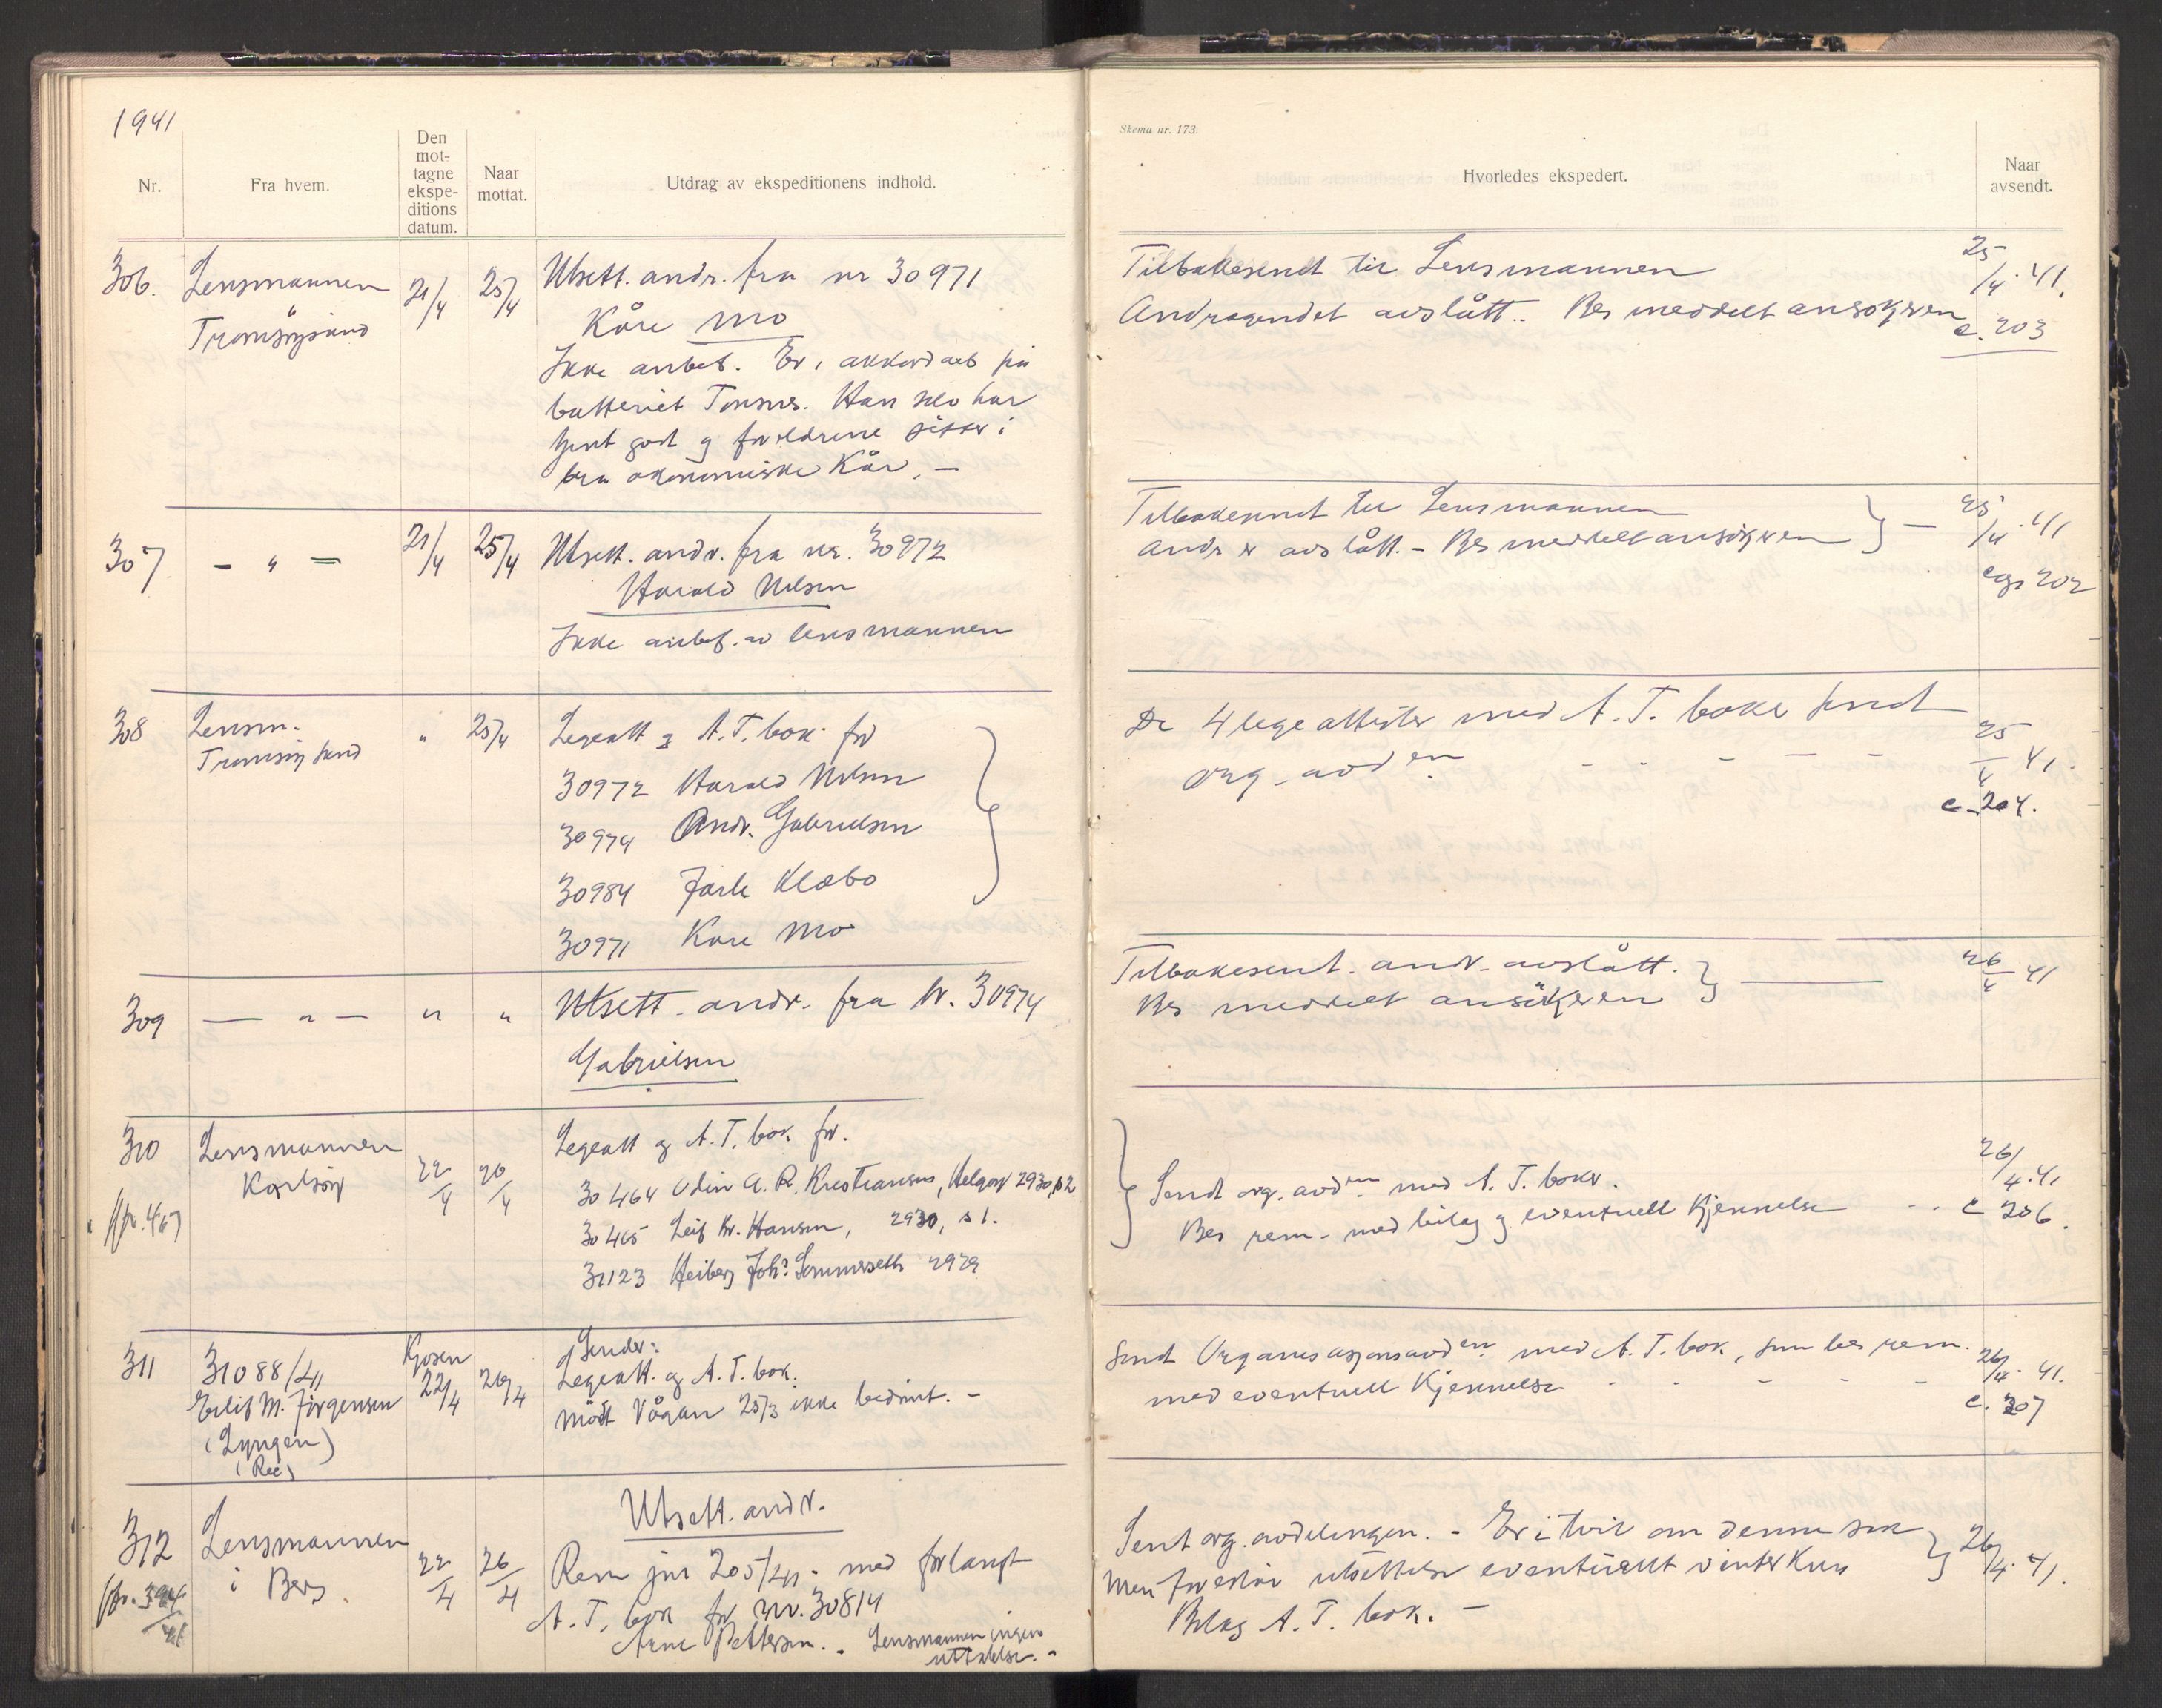 1941
Nr.
Fra hvem.
Den mot-
tagne
ekspe-
ditions
datum.
Naar
mottat.
Utdrag av ekspeditionens indhold.
306. Lensmannen 21/4 25/4 Utsett. andr. fra nr 30971
Tromsøysund Kåre Mo
Ikke anbef. Er i akkordarb på
batteriet Tonsnes. Han selv har
tjent godt og foreldrene sitter i
bra økonomiske kår. —
307 — " — 21/4 25/4 Utsett. andr. fra nr. 30972
Harald Nilsen
Ikke anbef. av lensmannen
308 Lensm. " 25/4 Legeatt og A.T. bok for
Tromsöysund
30972 Harald Nilsen
30974 Andr. Gabrielsen
30984 Jarle Klæbo
30971 Kåre Mo
309 — " — " " Utsett. andr. fra Nr. 30974
Gabrielsen
310 Lensmannen 22/4 26/4 Legeatt og A.T. bok for.
Karlsöy
30464 Odin A. R. Kristiansen, Helgöy 2930, s 2
30465 Leif Kr. Hansen, 2930, s 1.
31123 Heiberg Joh? Sommerseth 2929
311 31088/41 Kjosen 22/4 26/4 Sender:
Legeatt. og A.T. bok.
Eilif M. Jörgensen Mött Vågan 25/3 ikke bedömt. -
(Lyngen)
(Ree)
312 Lensmannen 22/4 26/4 Utsett. andr.
i Berg. Rem jnr 205/41 - med forlangt
A.T. bok for nr. 30814
Arne Pettersen. - Lensmannen ingen
uttalelse. -
Skema nr. 173.
Hvorledes ekspedert.
Naar
avsendt.
Tilbakesendt til Lensmannen 25/4. 41.
Andragendet avslått.. Bes meddelt ansökeren c. 203
Tilbakesendt til Lensmannen — 25/4. 41
Andr er avslått. - Bes meddelt ansökeren
202
De 4 legeattester med A.T. boker sendt 25/4 41.
org. avd en - - - - -
c. 204.
Tilbakesent. andr. avslått. 26/4 41
Bes meddelt ansökeren
Sendt org. avd en med A.T. boker. 26/4. 41
Bes rem. med bilag og eventuell kjennelse .. c 206.
Sendt Organisasjonsavd en med A.T. bok, som bes rem. 26/4. 41.
med eventuell kjennelse - - - - c. 207
Sent org. avdelingen. - Er i tvil om denne sak 26/4. 41.
men foreslår utsettelse eventuelt vinterkurs
Bilag A.T. bok. —